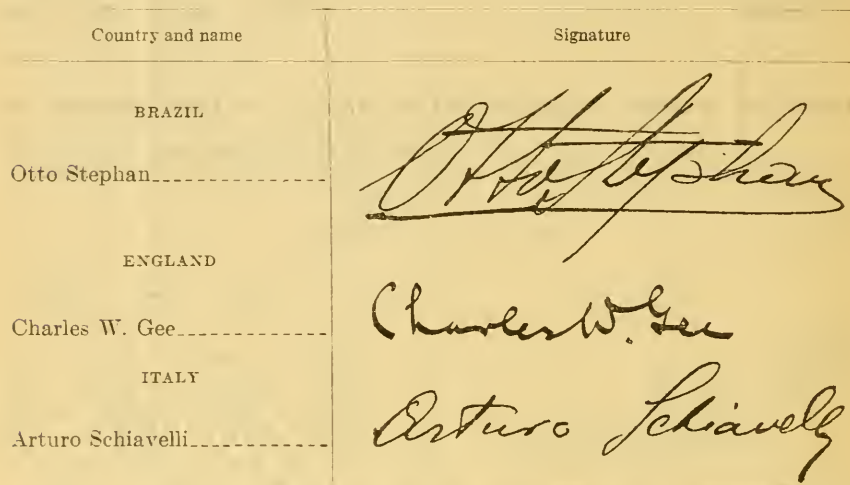 Country and name Signature
BRAZIL
Otto Stephan Otto Stephan
ENGLAND
Charles W. Gee Charles W. Gee
ITALY
Arturo Schiavelli Arturo Schiavelli